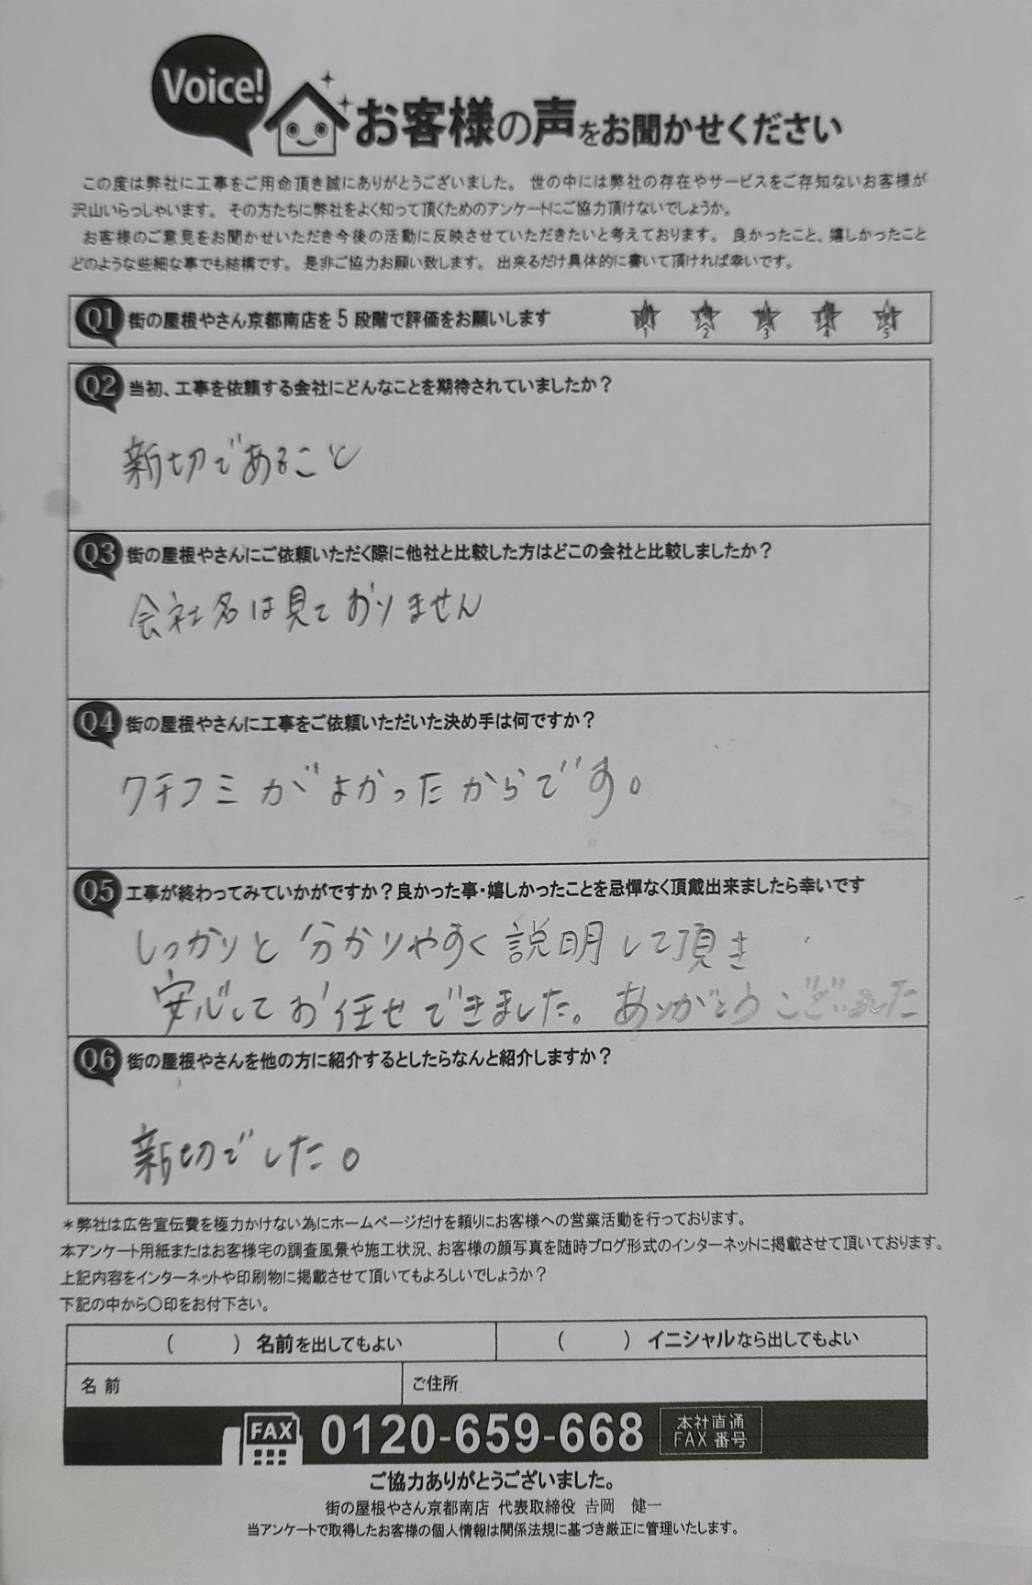 Voice!
お客様の声をお聞かせください
この度は弊社に工事をご用命頂き誠にありがとうございました。 世の中には弊社の存在やサービスをご存知ないお客様が
沢山いらっしゃいます。 その方たちに弊社をよく知って頂くためのアンケートにご協力頂けないでしょうか。
お客様のご意見をお聞かせいただき今後の活動に反映させていただきたいと考えております。 良かったこと、嬉しかったこと
どのような些細な事でも結構です。 是非ご協力お願い致します。 出来るだけ具体的に書いて頂ければ幸いです。
Q1 街の屋根やさん京都南店を5段階で評価をお願いします 1 2 3 4 5
Q2 当初、工事を依頼する会社にどんなことを期待されていましたか？
親切であること
Q3 街の屋根やさんにご依頼いただく際に他社と比較した方はどこの会社と比較しましたか？
会社名は見ておりません
Q4 街の屋根やさんに工事をご依頼いただいた決め手は何ですか？
クチコミがよかったからです。
Q5 工事が終わってみていかがですか？良かった事・嬉しかったことを忌憚なく頂戴出来ましたら幸いです
しっかりと分かりやすく説明して頂き
安心してお任せできました。ありがとうございました
Q6 街の屋根やさんを他の方に紹介するとしたらなんと紹介しますか？
親切でした。
＊弊社は広告宣伝費を極力かけない為にホームページだけを頼りにお客様への営業活動を行っております。
本アンケート用紙またはお客様宅の調査風景や施工状況、お客様の顔写真を随時ブログ形式のインターネットに掲載させて頂いております。
上記内容をインターネットや印刷物に掲載させて頂いてもよろしいでしょうか？
下記の中から〇印をお付下さい。
（ ）名前を出してもよい （ ）イニシャルなら出してもよい
名前 ご住所
FAX 0120-659-668 本社直通 FAX番号
ご協力ありがとうございました。
街の屋根やさん京都南店 代表取締役 吉岡 健一
当アンケートで取得したお客様の個人情報は関係法規に基づき厳正に管理いたします。